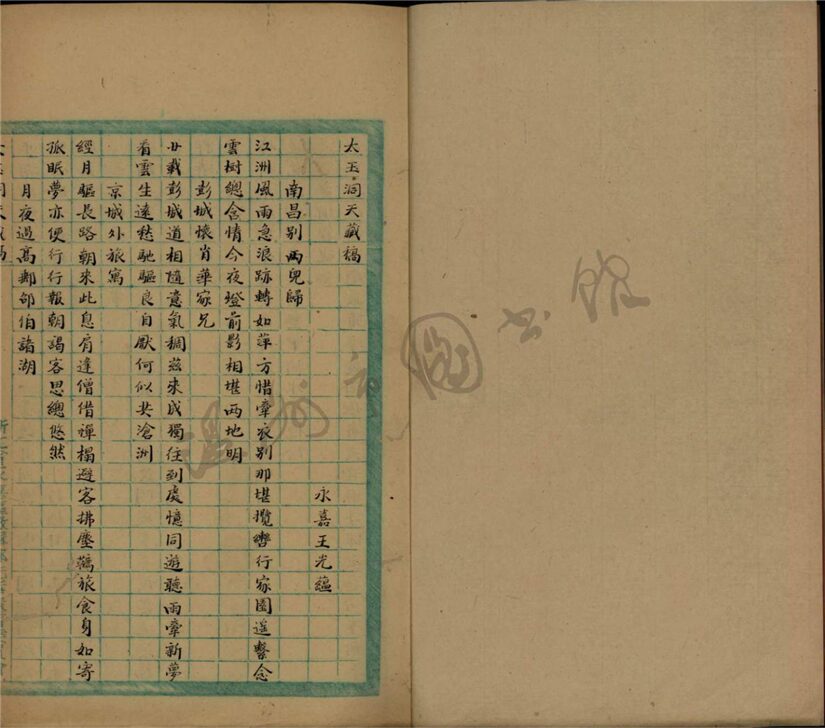 太玉洞天藏稿
永嘉王光蘊
南昌別兩兒歸
江洲風雨急浪跡轉如萍方惜牽衣別那堪攬轡行家園遥繫念
雲樹總含情今夜燈前影相堪兩地明
彭城懷肖華家兄
廿載彭城道相隨意氣稠茲來成獨往到處憶同遊聽雨牽新夢
看雲生遠愁馳驅良自厭何似共滄洲
京城外旅寓
經月驅長路朝來此息肩逢僧借禪榻避客拂塵鞯旅食身如寄
孤眠夢亦便行行報朝謁客思總悠然
月夜過高郵邵伯諸湖
溫州市圖書館